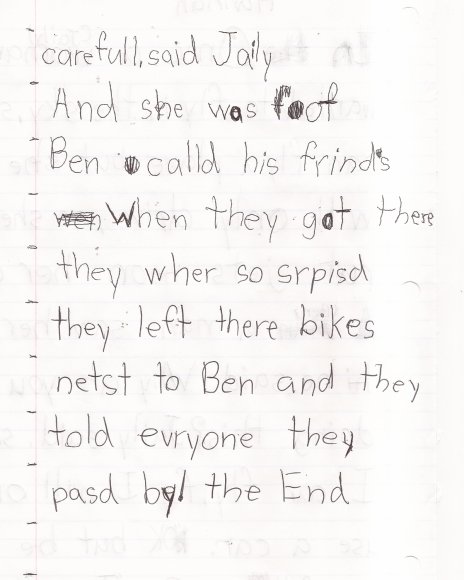 carefull, said Jaily
And she was foof
Ben calld his frinds
When they got there
they wher so srpisd
they left there bikes
netst to Ben and they
told evryone they
pasd by! the End